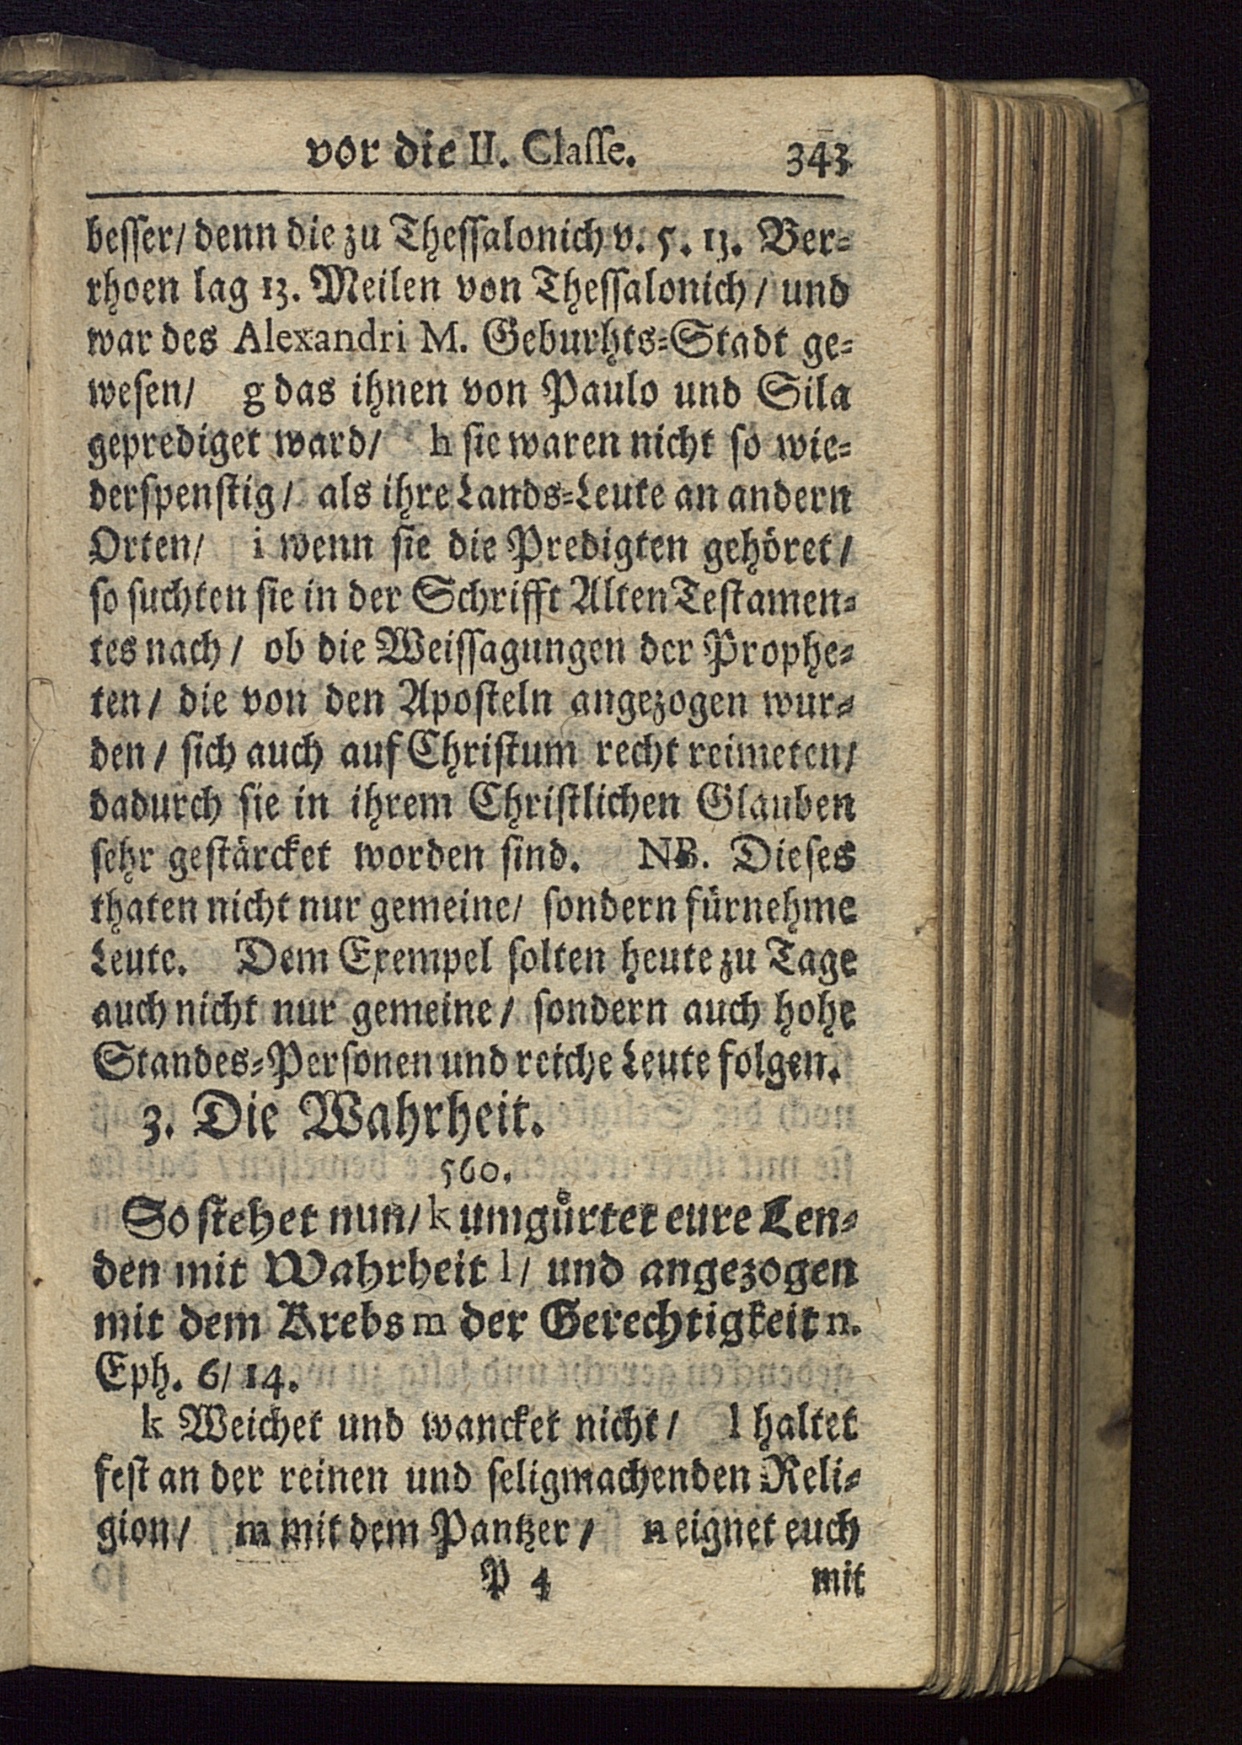 vor die II. Classe. 343
besser/ denn die zu Thessalonich v. 5. 13. Ber-
rhoen lag 13. Meilen von Thessalonich/ und
war des Alexandri M. Geburhts-Stadt ge-
wesen/ g das ihnen von Paulo und Sila
geprediget ward/ h sie waren nicht so wie-
derspenstig/ als ihre Lands-Leute an andern
Orten/ i wenn sie die Predigten gehöret/
so suchten sie in der Schrifft Alten Testamen-
tes nach/ ob die Weissagungen der Prophe-
ten/ die von den Aposteln angezogen wur-
den/ sich auch auf Christum recht reimeten/
dadurch sie in ihrem Christlichen Glauben
sehr gestärcket worden sind. NB. Dieses
thaten nicht nur gemeine/ sondern fürnehme
Leute. Dem Exempel solten heute zu Tage
auch nicht nur gemeine/ sondern auch hohe
Standes-Personen und reiche Leute folgen.
3. Die Wahrheit.
560.
So stehet nun/ k umgürtet eure Len-
den mit Wahrheit l/ und angezogen
mit dem Krebs m der Gerechtigkeit n.
Eph. 6/ 14.
k Weichet und wancket nicht/ l haltet
fest an der reinen und seligmachenden Reli-
gion/ m mit dem Pantzer/ n eignet euch
P 4 mit